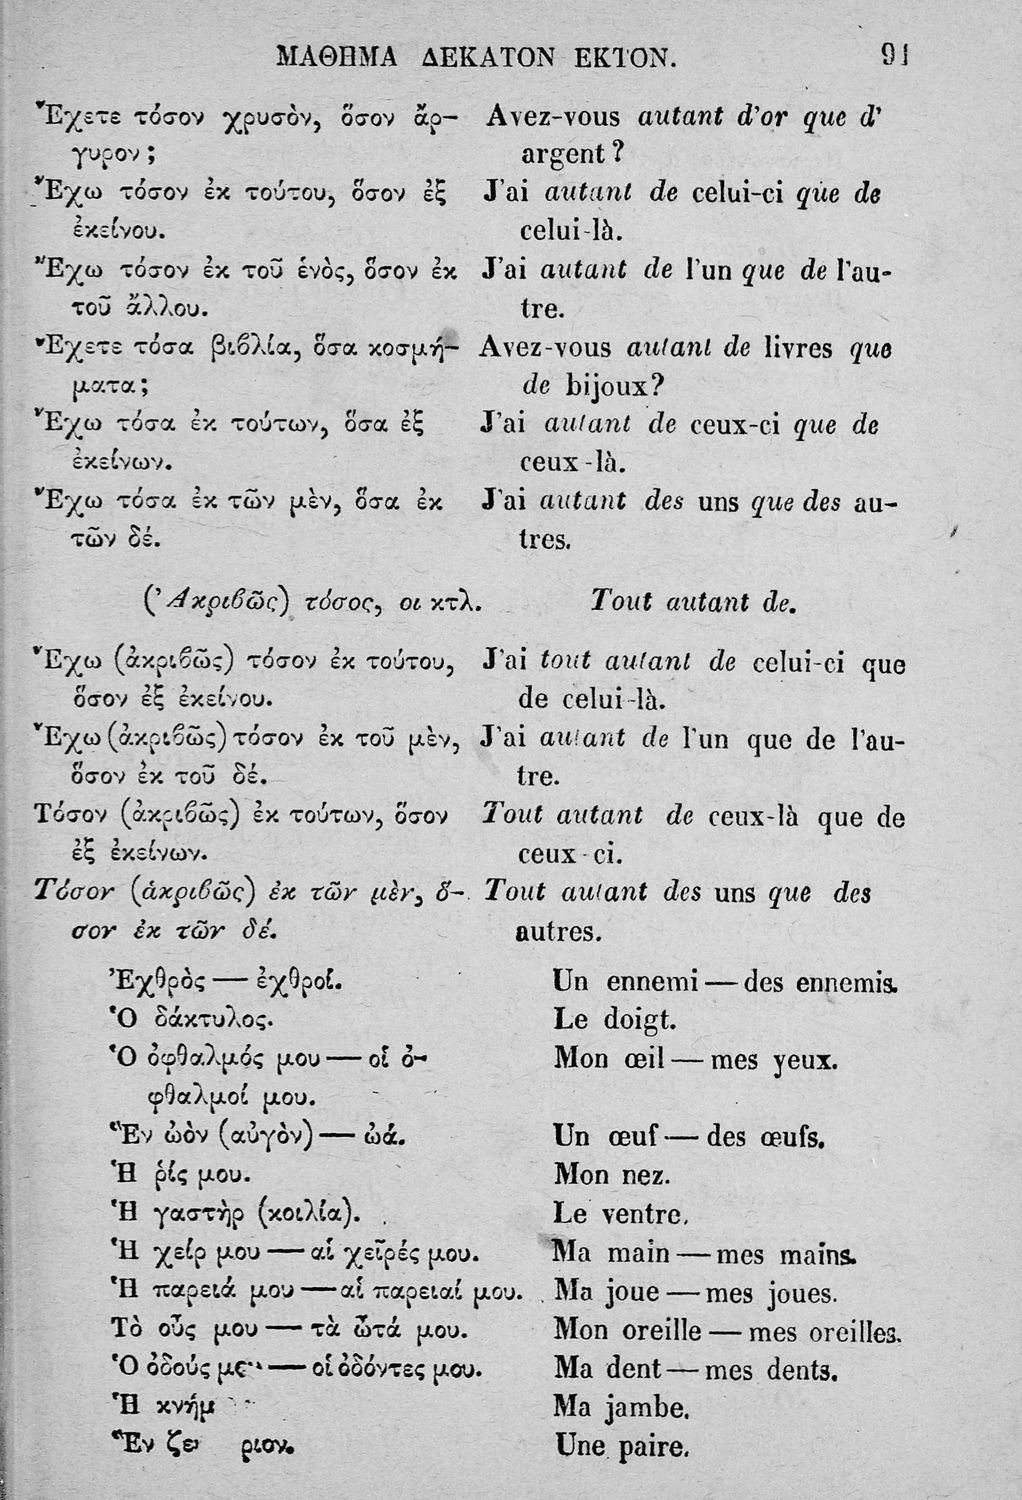 ΜΑΘΗΜΑ ΔΕΚΑΤΟΝ ΕΚΤΟΝ. 91
Ἔχετε τόσον χρυσὸν, ὅσον ἄρ- Avez-vous autant d'or que d'
γυρον; argent?
Ἔχω τόσον ἐκ τούτου, ὅσον ἐξ J'ai autant de celui-ci que de
ἐκείνου. celui-là.
Ἔχω τόσον ἐκ τοῦ ἑνὸς, ὅσον ἐκ J'ai autant de l'un que de l'au-
τοῦ ἄλλου. tre.
Ἔχετε τόσα βιβλία, ὅσα κοσμή- Avez-vous autant de livres que
ματα; de bijoux?
Ἔχω τόσα ἐκ τούτων, ὅσα ἐξ J'ai autant de ceux-ci que de
ἐκείνων. ceux-là.
Ἔχω τόσα ἐκ τῶν μὲν, ὅσα ἐκ J'ai autant des uns que des au-
τῶν δέ. tres.
(Ἀκριβῶς) τόσος, οι κτλ. Tout autant de.
Ἔχω (ἀκριβῶς) τόσον ἐκ τούτου, J'ai tout autant de celui-ci que
ὅσον ἐξ ἐκείνου. de celui-là.
Ἔχω (ἀκριβῶς) τόσον ἐκ τοῦ μὲν, J'ai autant de l'un que de l'au-
ὅσον ἐκ τοῦ δέ. tre.
Τόσον (ἀκριβῶς) ἐκ τούτων, ὅσον Tout autant de ceux-là que de
ἐξ ἐκείνων. ceux-ci.
Τόσον (ἀκριβῶς) ἐκ τῶν μὲν, ὅ- Tout autant des uns que des
σον ἐκ τῶν δέ. autres.
Ἐχθρὸς — ἐχθροί. Un ennemi — des ennemis.
Ὁ δάκτυλος. Le doigt.
Ὁ ὀφθαλμός μου — οἱ ὀ- Mon œil — mes yeux.
φθαλμοί μου.
Ἓν ὠὸν (αὐγὸν) — ὠά. Un œuf — des œufs.
Ἡ ῥίς μου. Mon nez.
Ἡ γαστὴρ (κοιλία). Le ventre.
Ἡ χείρ μου — αἱ χεῖρές μου. Ma main — mes mains.
Ἡ παρειά μου — αἱ παρειαί μου. Ma joue — mes joues.
Τὸ οὖς μου — τὰ ὦτά μου. Mon oreille — mes oreilles.
Ὁ ὀδούς — οἱ ὀδόντες μου. Ma dent — mes dents.
Ἡ Ma jambe.
Ἓν Une paire.